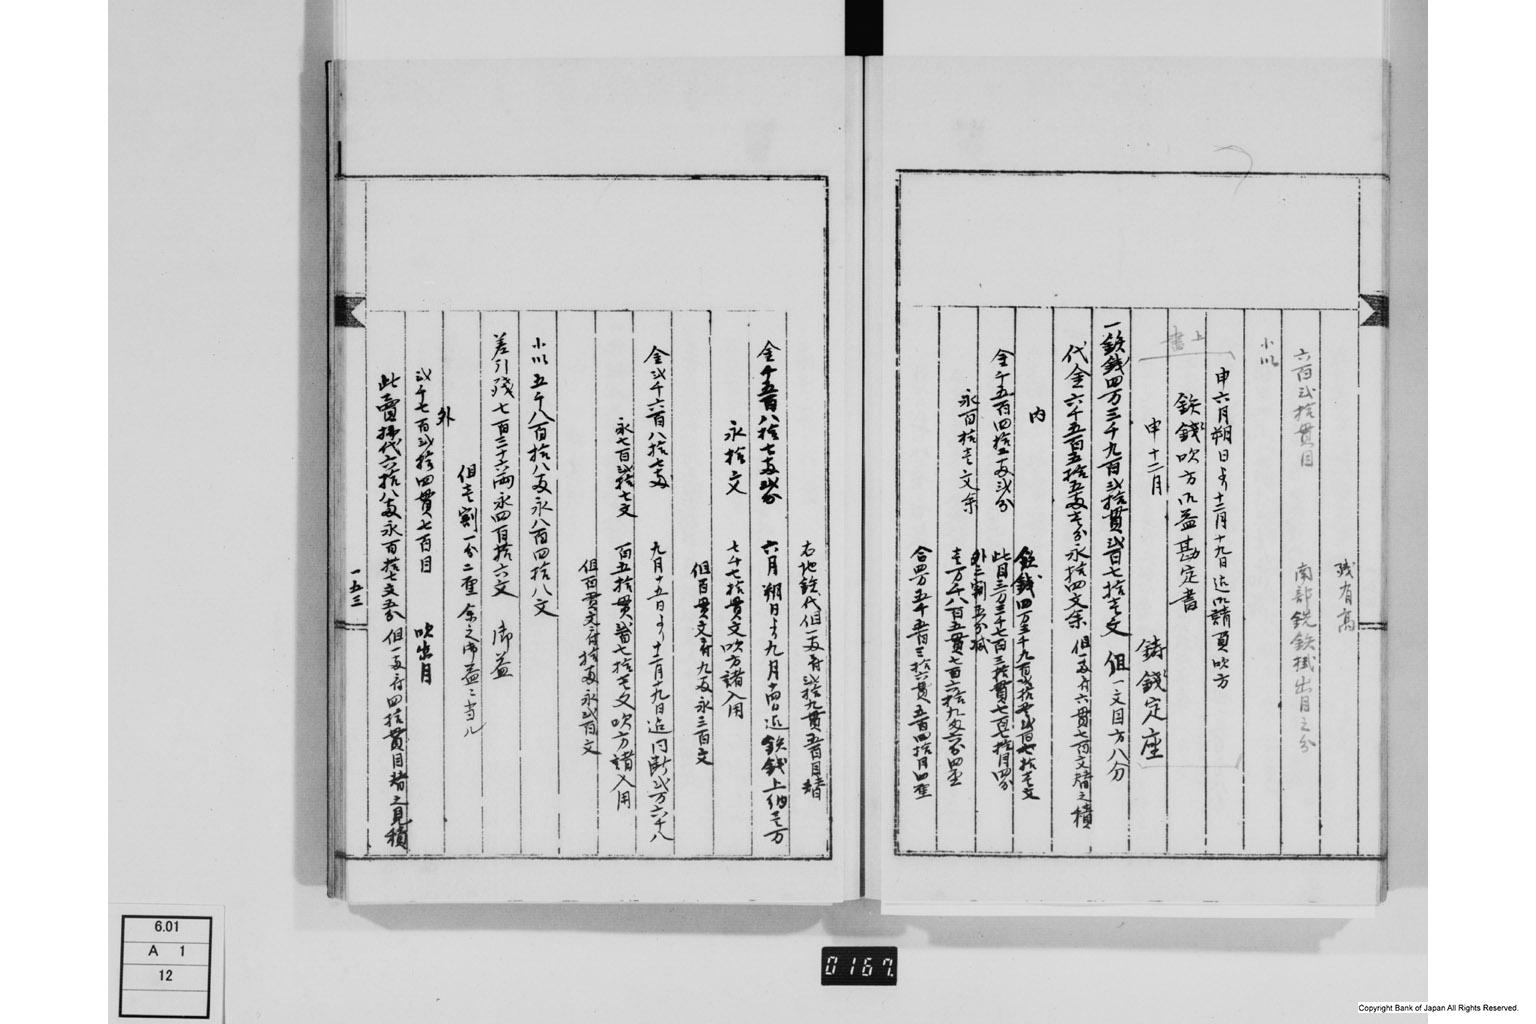 残有高
六百弐拾貫目 南部銑鉄掛出目之分
小以
申六月朔日ゟ十二月十九日迄御請負吹方
上書
鉄銭吹方御益勘定書
申十二月 鋳銭定座
一鉄銭四万三千九百弐拾貫弐百七拾壱文 但一文目方八分
代金六千五百五拾五両壱分永拾四文余 但一両ニ付六貫七百文替之積
内
金千五百四拾五両弐分 鉄銭四万三千九百弐拾貫弐百七拾壱文
此目三万三千七百三拾貫七百七拾目四分
永百拾壱文余 外三割五分減
壱万千八百五貫七百六拾九匁六分四厘
合四万五千五百三拾六貫五百四拾目四厘
右地鉄代但一両ニ付弐拾九貫五百目替
金千五百八拾七両弐分 六月朔日ゟ九月十四日迄鉄銭上納壱万
永拾文 七千七拾貫文吹方諸入用
但百貫文ニ付九両永三百文
金弐千六百八拾七両 九月十五日ゟ十二月十九日迄同断弐万六千八
永七百弐拾七文 百五拾貫弐百七拾壱文吹方諸入用
但百貫文ニ付拾両永弐百文
小以五千八百拾八両永八百四拾八文
差引残七百三十六両永四百拾六文 御益
但壱割一分二厘余之御益ニ当ル
外
弐千七百弐拾四貫七百目 吹出目
此賣払代六拾八両永百拾七文五分 但一両ニ付四拾貫目替之見積
一五三
0167.
6.01
A 1
12
Copyright Bank of Japan All Rights Reserved.